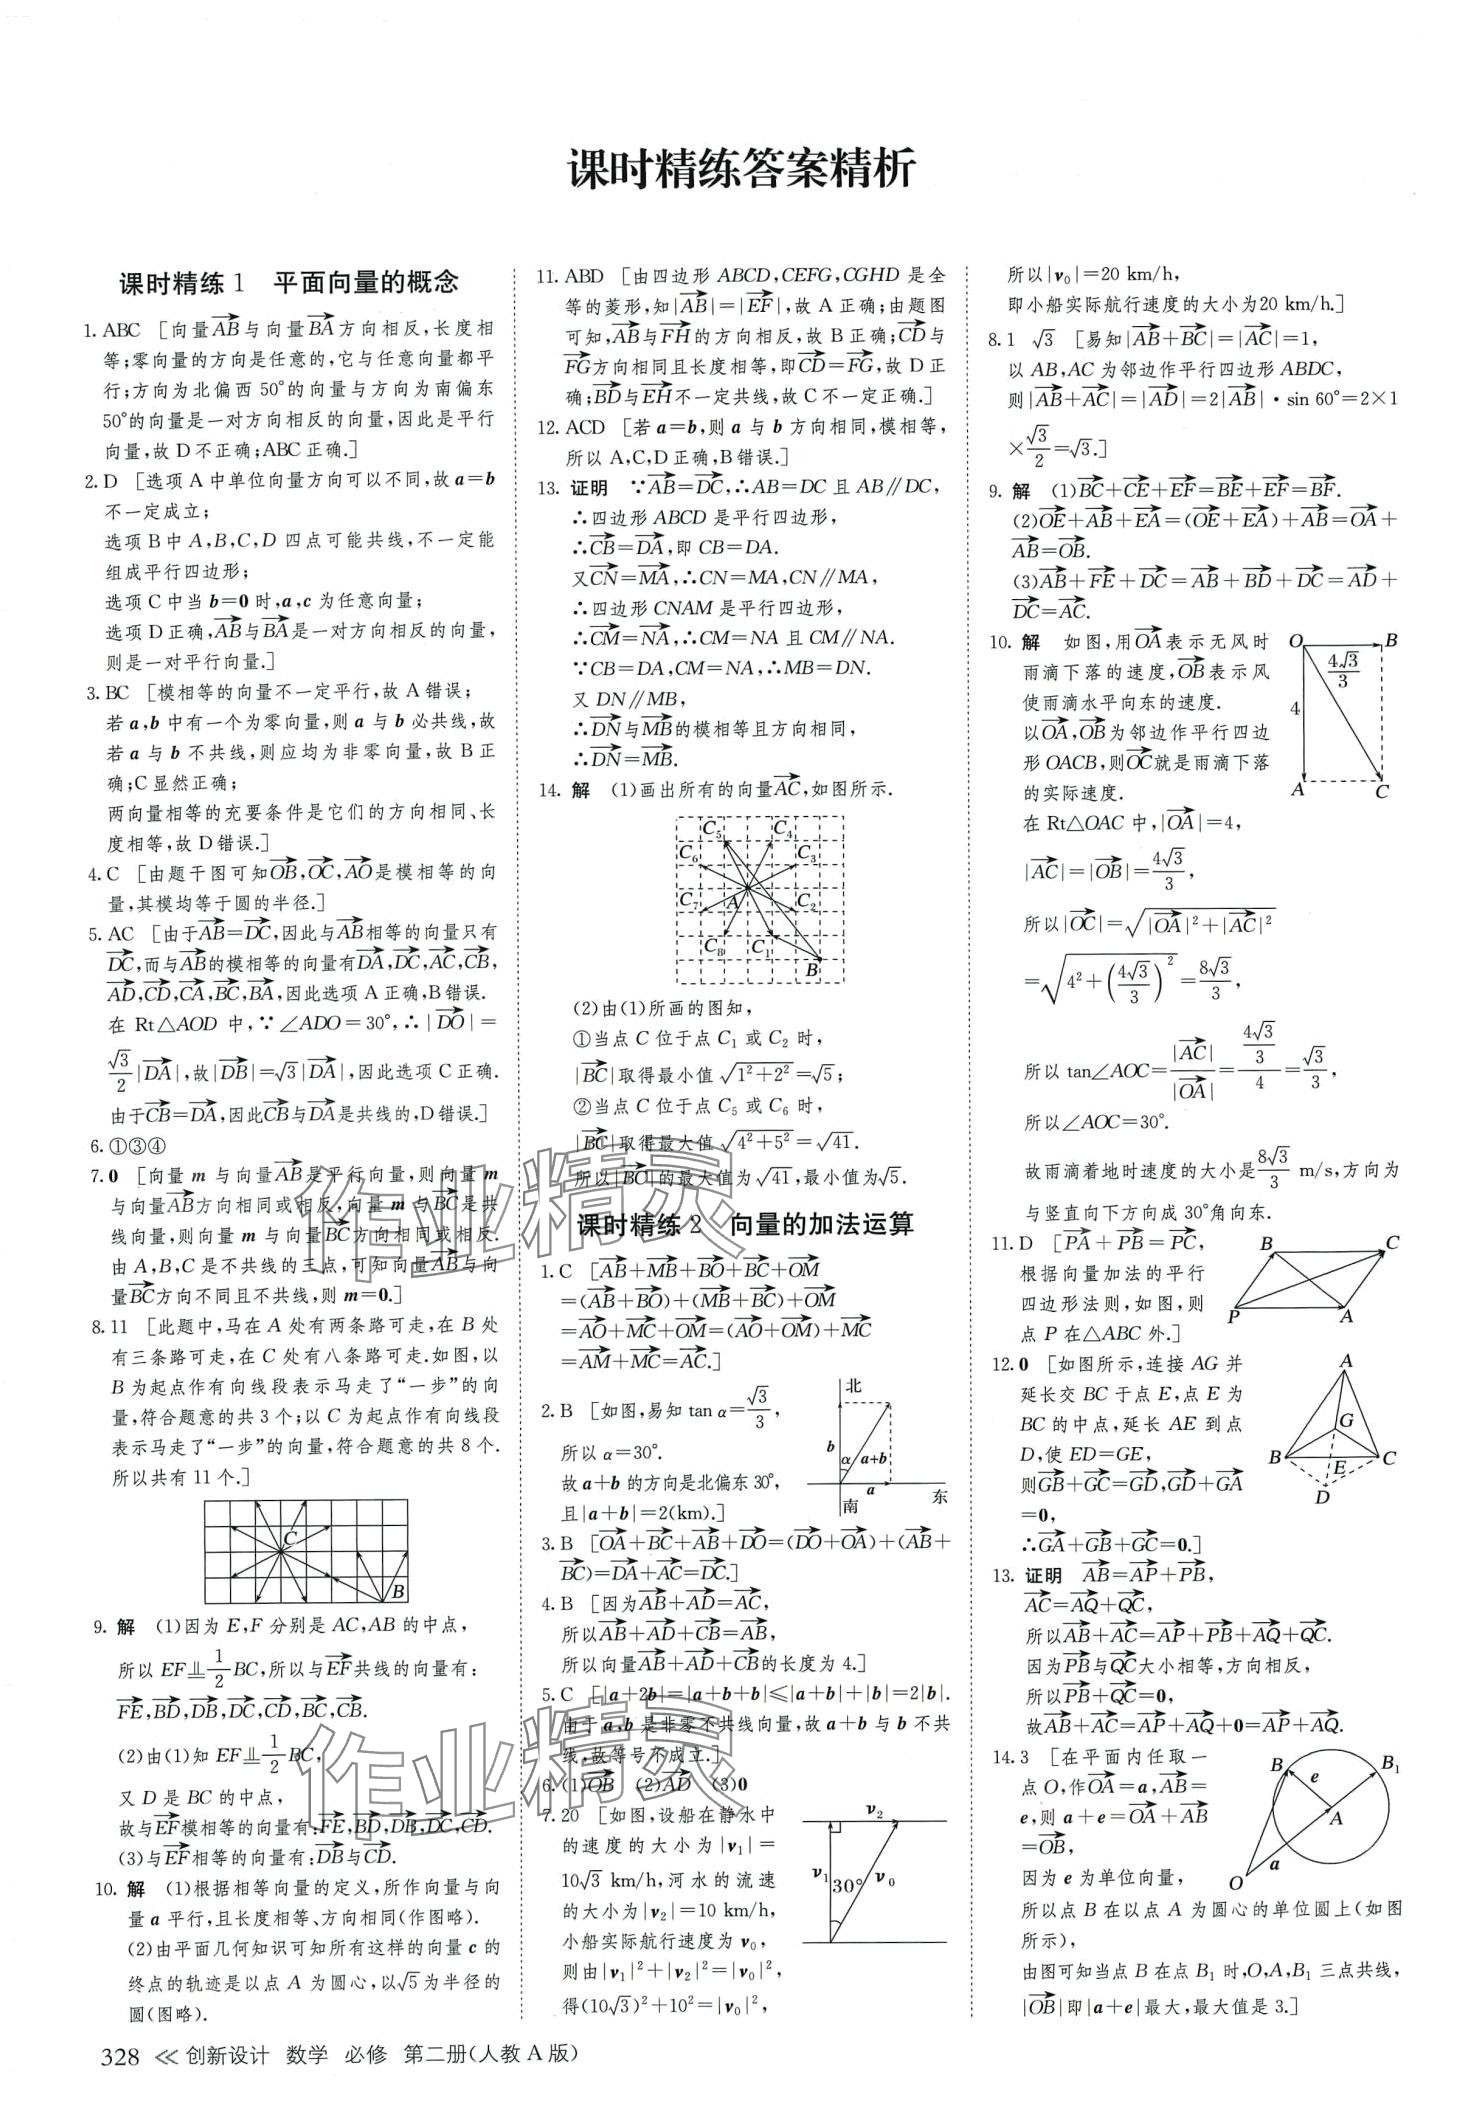 课时精练答案精析
课时精练 1 平面向量的概念
1. ABC [向量$\overrightarrow{AB}$与向量$\overrightarrow{BA}$方向相反,长度相
等;零向量的方向是任意的,它与任意向量都平
行;方向为北偏西 50°的向量与方向为南偏东
50°的向量是一对方向相反的向量,因此是平行
向量,故 D 不正确;ABC 正确.]
2. D [选项 A 中单位向量方向可以不同,故 a=b
不一定成立;
选项 B 中 A,B,C,D 四点可能共线,不一定能
组成平行四边形;
选项 C 中当 b=0 时,a,c 为任意向量;
选项 D 正确,$\overrightarrow{AB}$与$\overrightarrow{BA}$是一对方向相反的向量,
则是一对平行向量.]
3. BC [模相等的向量不一定平行,故 A 错误;
若 a,b 中有一个为零向量,则 a 与 b 必共线,故
若 a 与 b 不共线,则应均为非零向量,故 B 正
确;C 显然正确;
两向量相等的充要条件是它们的方向相同、长
度相等,故 D 错误.]
4. C [由题干图可知$\overrightarrow{OB}$,$\overrightarrow{OC}$,$\overrightarrow{AO}$是模相等的向
量,其模均等于圆的半径.]
5. AC [由于$\overrightarrow{AB}$=$\overrightarrow{DC}$,因此与$\overrightarrow{AB}$相等的向量只有
$\overrightarrow{DC}$,而与$\overrightarrow{AB}$的模相等的向量有$\overrightarrow{DA}$,$\overrightarrow{DC}$,$\overrightarrow{AC}$,$\overrightarrow{CB}$,
$\overrightarrow{AD}$,$\overrightarrow{CD}$,$\overrightarrow{CA}$,$\overrightarrow{BC}$,$\overrightarrow{BA}$,因此选项 A 正确,B 错误.
在 Rt△AOD 中,∵∠ADO=30°,∴|$\overrightarrow{DO}$|=
$\frac{\sqrt{3}}{2}$|$\overrightarrow{DA}$|,故|$\overrightarrow{DB}$|=$\sqrt{3}$|$\overrightarrow{DA}$|,因此选项 C 正确.
由于$\overrightarrow{CB}$=$\overrightarrow{DA}$,因此$\overrightarrow{CB}$与$\overrightarrow{DA}$是共线的,D 错误.]
6. ①③④
7. 0 [向量 m 与向量$\overrightarrow{AB}$是平行向量,则向量 m
与向量$\overrightarrow{AB}$方向相同或相反,向量 m 与$\overrightarrow{BC}$是共
线向量,则向量 m 与向量$\overrightarrow{BC}$方向相同或相反.
由 A,B,C 是不共线的三点,可知向量$\overrightarrow{AB}$与向
量$\overrightarrow{BC}$方向不同且不共线,则 m=0.]
8. 11 [此题中,马在 A 处有两条路可走,在 B 处
有三条路可走,在 C 处有八条路可走.如图,以
B 为起点作有向线段表示马走了“一步”的向
量,符合题意的共 3 个;以 C 为起点作有向线段
表示马走了“一步”的向量,符合题意的共 8 个.
所以共有 11 个.]
C
B
9. 解 (1)因为 E,F 分别是 AC,AB 的中点,
所以 EF⊥∥$\frac{1}{2}$BC,所以与$\overrightarrow{EF}$共线的向量有:
$\overrightarrow{FE}$,$\overrightarrow{BD}$,$\overrightarrow{DB}$,$\overrightarrow{DC}$,$\overrightarrow{CD}$,$\overrightarrow{BC}$,$\overrightarrow{CB}$.
(2)由(1)知 EF⊥∥$\frac{1}{2}$BC,
又 D 是 BC 的中点,
故与$\overrightarrow{EF}$模相等的向量有:$\overrightarrow{FE}$,$\overrightarrow{BD}$,$\overrightarrow{DB}$,$\overrightarrow{DC}$,$\overrightarrow{CD}$.
(3)与$\overrightarrow{EF}$相等的向量有:$\overrightarrow{DB}$与$\overrightarrow{CD}$.
10. 解 (1)根据相等向量的定义,所作向量与向
量 a 平行,且长度相等、方向相同(作图略).
(2)由平面几何知识可知所有这样的向量 c 的
终点的轨迹是以点 A 为圆心,以$\sqrt{5}$为半径的
圆(图略).
11. ABD [由四边形 ABCD,CEFG,CGHD 是全
等的菱形,知|$\overrightarrow{AB}$|=|$\overrightarrow{EF}$|,故 A 正确;由题图
可知,$\overrightarrow{AB}$与$\overrightarrow{FH}$的方向相反,故 B 正确;$\overrightarrow{CD}$与
$\overrightarrow{FG}$方向相同且长度相等,即$\overrightarrow{CD}$=$\overrightarrow{FG}$,故 D 正
确;$\overrightarrow{BD}$与$\overrightarrow{EH}$不一定共线,故 C 不一定正确.]
12. ACD [若 a=b,则 a 与 b 方向相同,模相等,
所以 A,C,D 正确,B 错误.]
13. 证明 ∵$\overrightarrow{AB}$=$\overrightarrow{DC}$,∴AB=DC 且 AB∥DC,
∴四边形 ABCD 是平行四边形,
∴$\overrightarrow{CB}$=$\overrightarrow{DA}$,即 CB=DA.
又$\overrightarrow{CN}$=$\overrightarrow{MA}$,∴CN=MA,CN∥MA,
∴四边形 CNAM 是平行四边形,
∴$\overrightarrow{CM}$=$\overrightarrow{NA}$,∴CM=NA 且 CM∥NA.
∵CB=DA,CM=NA,∴MB=DN.
又 DN∥MB,
∴$\overrightarrow{DN}$与$\overrightarrow{MB}$的模相等且方向相同,
∴$\overrightarrow{DN}$=$\overrightarrow{MB}$.
14. 解 (1)画出所有的向量$\overrightarrow{AC}$,如图所示.
C₅ C₄
C₆ C₃
C₇ A C₂
C₈ C₁
B
(2)由(1)所画的图知,
①当点 C 位于点 C₁ 或 C₂ 时,
|$\overrightarrow{BC}$|取得最小值$\sqrt{1^2+2^2}$=$\sqrt{5}$;
②当点 C 位于点 C₅ 或 C₆ 时,
|$\overrightarrow{BC}$|取得最大值$\sqrt{4^2+5^2}$=$\sqrt{41}$.
所以|$\overrightarrow{BC}$|的最大值为$\sqrt{41}$,最小值为$\sqrt{5}$.
课时精练 2 向量的加法运算
1. C [$\overrightarrow{AB}$+$\overrightarrow{MB}$+$\overrightarrow{BO}$+$\overrightarrow{BC}$+$\overrightarrow{OM}$
=($\overrightarrow{AB}$+$\overrightarrow{BO}$)+($\overrightarrow{MB}$+$\overrightarrow{BC}$)+$\overrightarrow{OM}$
=$\overrightarrow{AO}$+$\overrightarrow{MC}$+$\overrightarrow{OM}$=($\overrightarrow{AO}$+$\overrightarrow{OM}$)+$\overrightarrow{MC}$
=$\overrightarrow{AM}$+$\overrightarrow{MC}$=$\overrightarrow{AC}$.]
2. B [如图,易知 tan α=$\frac{\sqrt{3}}{3}$,
所以 α=30°.
故 a+b 的方向是北偏东 30°,
且|a+b|=2(km).]
北
b α a+b
a
南 东
3. B [$\overrightarrow{OA}$+$\overrightarrow{BC}$+$\overrightarrow{AB}$+$\overrightarrow{DO}$=($\overrightarrow{DO}$+$\overrightarrow{OA}$)+($\overrightarrow{AB}$+
$\overrightarrow{BC}$)=$\overrightarrow{DA}$+$\overrightarrow{AC}$=$\overrightarrow{DC}$.]
4. B [因为$\overrightarrow{AB}$+$\overrightarrow{AD}$=$\overrightarrow{AC}$,
所以$\overrightarrow{AB}$+$\overrightarrow{AD}$+$\overrightarrow{CB}$=$\overrightarrow{AB}$,
所以向量$\overrightarrow{AB}$+$\overrightarrow{AD}$+$\overrightarrow{CB}$的长度为 4.]
5. C [|a+2b|=|a+b+b|≤|a+b|+|b|=2|b|.
由于 a,b 是非零不共线向量,故 a+b 与 b 不共
线,故等号不成立.]
6. (1)$\overrightarrow{OB}$ (2)$\overrightarrow{AD}$ (3)0
7. 20 [如图,设船在静水中
的速度的大小为|v₁|=
10$\sqrt{3}$ km/h,河水的流速
的大小为|v₂|=10 km/h,
小船实际航行速度为 v₀,
则由|v₁|²+|v₂|²=|v₀|²,
得(10$\sqrt{3}$)²+10²=|v₀|²,
v₂
v₁ 30° v₀
所以|v₀|=20 km/h,
即小船实际航行速度的大小为20 km/h.]
8. 1 $\sqrt{3}$ [易知|$\overrightarrow{AB}$+$\overrightarrow{BC}$|=|$\overrightarrow{AC}$|=1,
以 AB,AC 为邻边作平行四边形 ABDC,
则|$\overrightarrow{AB}$+$\overrightarrow{AC}$|=|$\overrightarrow{AD}$|=2|$\overrightarrow{AB}$|·sin 60°=2×1
×$\frac{\sqrt{3}}{2}$=$\sqrt{3}$.]
9. 解 (1)$\overrightarrow{BC}$+$\overrightarrow{CE}$+$\overrightarrow{EF}$=$\overrightarrow{BE}$+$\overrightarrow{EF}$=$\overrightarrow{BF}$.
(2)$\overrightarrow{OE}$+$\overrightarrow{AB}$+$\overrightarrow{EA}$=($\overrightarrow{OE}$+$\overrightarrow{EA}$)+$\overrightarrow{AB}$=$\overrightarrow{OA}$+
$\overrightarrow{AB}$=$\overrightarrow{OB}$.
(3)$\overrightarrow{AB}$+$\overrightarrow{FE}$+$\overrightarrow{DC}$=$\overrightarrow{AB}$+$\overrightarrow{BD}$+$\overrightarrow{DC}$=$\overrightarrow{AD}$+
$\overrightarrow{DC}$=$\overrightarrow{AC}$.
10. 解 如图,用$\overrightarrow{OA}$表示无风时
雨滴下落的速度,$\overrightarrow{OB}$表示风
使雨滴水平向东的速度.
以$\overrightarrow{OA}$,$\overrightarrow{OB}$为邻边作平行四边
形 OACB,则$\overrightarrow{OC}$就是雨滴下落
的实际速度.
O B
$\frac{4\sqrt{3}}{3}$
4
A C
在 Rt△OAC 中,|$\overrightarrow{OA}$|=4,
|$\overrightarrow{AC}$|=|$\overrightarrow{OB}$|=$\frac{4\sqrt{3}}{3}$,
所以|$\overrightarrow{OC}$|=$\sqrt{|\overrightarrow{OA}|^2+|\overrightarrow{AC}|^2}$
=$\sqrt{4^2+\left(\frac{4\sqrt{3}}{3}\right)^2}$=$\frac{8\sqrt{3}}{3}$,
所以 tan∠AOC=$\frac{|\overrightarrow{AC}|}{|\overrightarrow{OA}|}$=$\frac{\frac{4\sqrt{3}}{3}}{4}$=$\frac{\sqrt{3}}{3}$,
所以∠AOC=30°.
故雨滴着地时速度的大小是$\frac{8\sqrt{3}}{3}$ m/s,方向为
与竖直向下方向成 30°角向东.
11. D [$\overrightarrow{PA}$+$\overrightarrow{PB}$=$\overrightarrow{PC}$,
根据向量加法的平行
四边形法则,如图,则
点 P 在△ABC 外.]
B C
P A
12. 0 [如图所示,连接 AG 并
延长交 BC 于点 E,点 E 为
BC 的中点,延长 AE 到点
D,使 ED=GE,
则$\overrightarrow{GB}$+$\overrightarrow{GC}$=$\overrightarrow{GD}$,$\overrightarrow{GD}$+$\overrightarrow{GA}$
=0,
∴$\overrightarrow{GA}$+$\overrightarrow{GB}$+$\overrightarrow{GC}$=0.]
A
G
B E C
D
13. 证明 $\overrightarrow{AB}$=$\overrightarrow{AP}$+$\overrightarrow{PB}$,
$\overrightarrow{AC}$=$\overrightarrow{AQ}$+$\overrightarrow{QC}$,
所以$\overrightarrow{AB}$+$\overrightarrow{AC}$=$\overrightarrow{AP}$+$\overrightarrow{PB}$+$\overrightarrow{AQ}$+$\overrightarrow{QC}$.
因为$\overrightarrow{PB}$与$\overrightarrow{QC}$大小相等,方向相反,
所以$\overrightarrow{PB}$+$\overrightarrow{QC}$=0,
故$\overrightarrow{AB}$+$\overrightarrow{AC}$=$\overrightarrow{AP}$+$\overrightarrow{AQ}$+0=$\overrightarrow{AP}$+$\overrightarrow{AQ}$.
14. 3 [在平面内任取一
点 O,作$\overrightarrow{OA}$=a,$\overrightarrow{AB}$=
e,则 a+e=$\overrightarrow{OA}$+$\overrightarrow{AB}$
=$\overrightarrow{OB}$,
因为 e 为单位向量,
所以点 B 在以点 A 为圆心的单位圆上(如图
所示),
由图可知当点 B 在点 B₁ 时,O,A,B₁ 三点共线,
|$\overrightarrow{OB}$|即|a+e|最大,最大值是 3.]
B B₁
e
A
a
O
作业精灵
作业精灵
328 << 创新设计 数学 必修 第二册(人教 A 版)